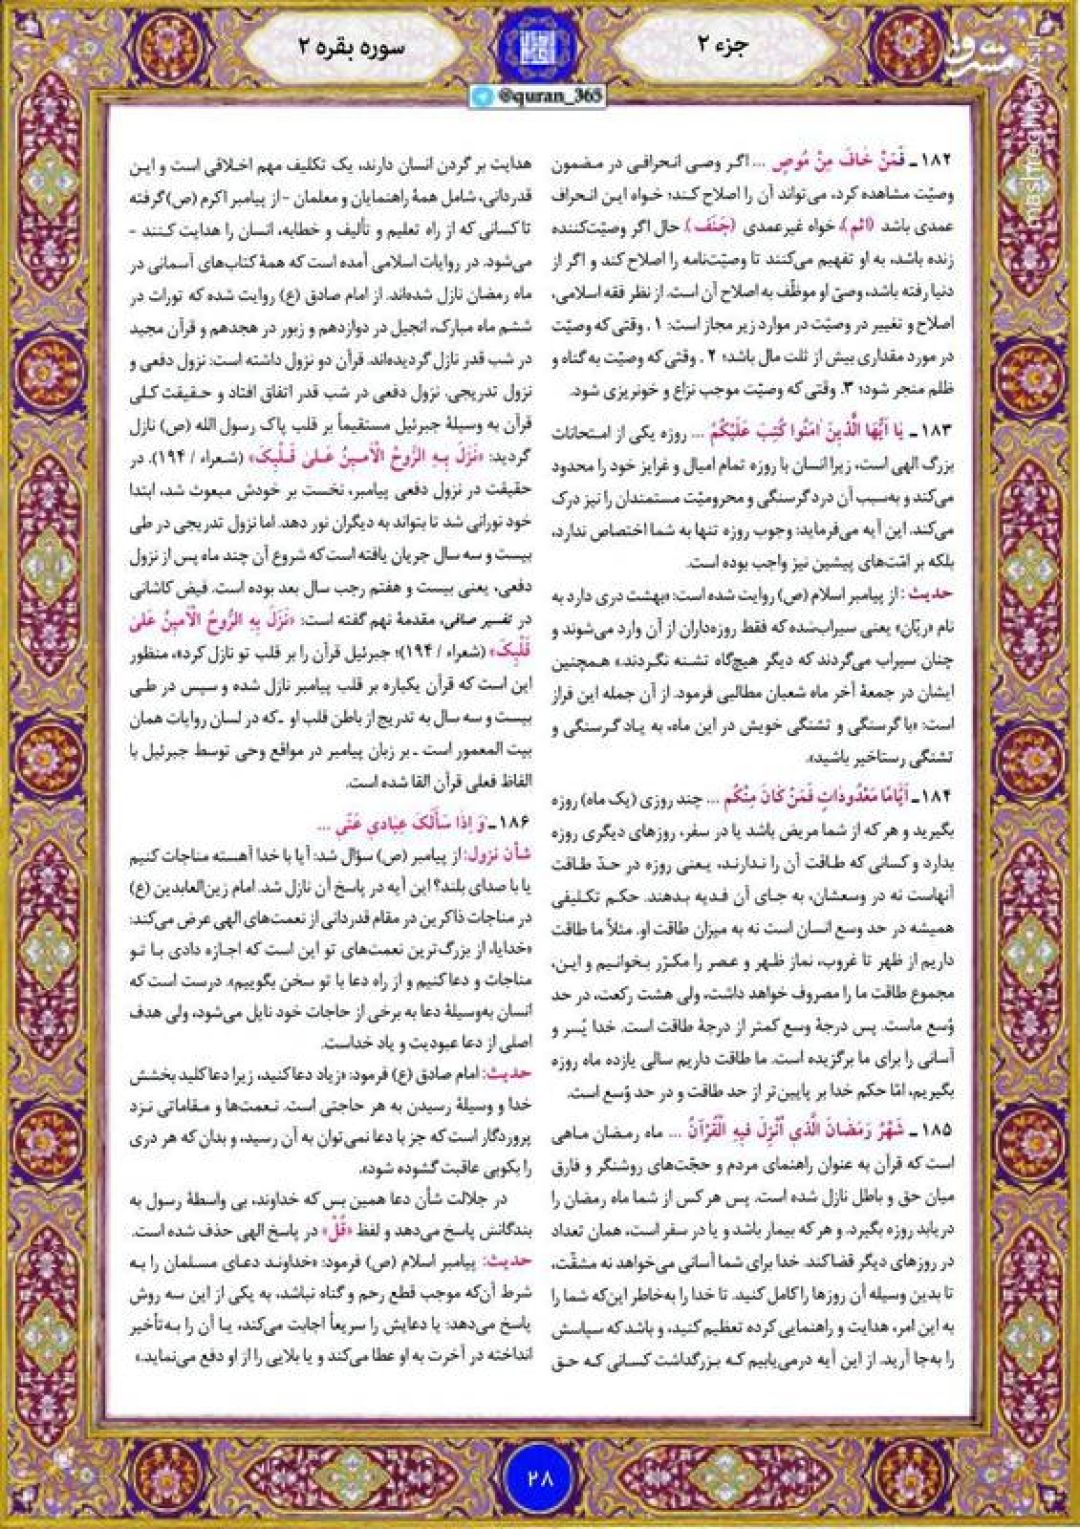 جزء ۲
سوره بقره ۲
مشرق
mashreghnews.ir
@quran_365
۱۸۲ـ فَمَنْ خَافَ مِنْ مُوصٍ ... اگر وصی انحرافی در مضمون
وصیّت مشاهده کرد، می‌تواند آن را اصلاح کند؛ خواه این انحراف
عمدی باشد (اثم)، خواه غیرعمدی (جَنَف). حال اگر وصیّت‌کننده
زنده باشد، به او تفهیم می‌کنند تا وصیّت‌نامه را اصلاح کند و اگر از
دنیا رفته باشد، وصیّ او موظّف به اصلاح آن است. از نظر فقه اسلامی،
اصلاح و تغییر در وصیّت در موارد زیر مجاز است: ۱. وقتی که وصیّت
در مورد مقداری بیش از ثلث مال باشد؛ ۲. وقتی که وصیّت به گناه و
ظلم منجر شود؛ ۳. وقتی که وصیّت موجب نزاع و خونریزی شود.
۱۸۳ـ یَا أَیُّهَا الَّذِینَ آمَنُوا کُتِبَ عَلَیْکُمُ ... روزه یکی از امتحانات
بزرگ الهی است، زیرا انسان با روزه تمام امیال و غرایز خود را محدود
می‌کند و به‌سبب آن درد گرسنگی و محرومیّت مستمندان را نیز درک
می‌کند. این آیه می‌فرماید: وجوب روزه تنها به شما اختصاص ندارد،
بلکه بر امّت‌های پیشین نیز واجب بوده است.
حدیث: از پیامبر اسلام (ص) روایت شده است: «بهشت دری دارد به
نام «ریّان» یعنی سیراب‌شده که فقط روزه‌داران از آن وارد می‌شوند و
چنان سیراب می‌گردند که دیگر هیچ‌گاه تشنه نگردند.» همچنین
ایشان در جمعهٔ آخر ماه شعبان مطالبی فرمود. از آن جمله این فراز
است: «با گرسنگی و تشنگی خویش در این ماه، به یاد گرسنگی و
تشنگی رستاخیر باشید».
۱۸۴ـ أَیَّامًا مَعْدُودَاتٍ فَمَنْ کَانَ مِنْکُم ... چند روزی (یک ماه) روزه
بگیرید و هر که از شما مریض باشد یا در سفر، روزهای دیگری روزه
بدارد و کسانی که طاقت آن را ندارند، یعنی روزه در حدّ طاقت
آنهاست نه در وسعشان، به جای آن فدیه بدهند. حکم تکلیفی
همیشه در حد وسع انسان است نه به میزان طاقت او. مثلاً ما طاقت
داریم از ظهر تا غروب، نماز ظهر و عصر را مکرّر بخوانیم و این،
مجموع طاقت ما را مصروف خواهد داشت، ولی هشت رکعت، در حد
وُسع ماست. پس درجهٔ وسع کمتر از درجهٔ طاقت است. خدا یُسر و
آسانی را برای ما برگزیده است. ما طاقت داریم سالی یازده ماه روزه
بگیریم، امّا حکم خدا بر پایین‌تر از حد طاقت و در حد وُسع است.
۱۸۵ـ شَهْرُ رَمَضَانَ الَّذِی أُنْزِلَ فِیهِ الْقُرْآنُ ... ماه رمضان ماهی
است که قرآن به عنوان راهنمای مردم و حجّت‌های روشنگر و فارق
میان حق و باطل نازل شده است. پس هر کس از شما ماه رمضان را
دریابد روزه بگیرد. و هر که بیمار باشد و یا در سفر است، همان تعداد
در روزهای دیگر قضا کند. خدا برای شما آسانی می‌خواهد نه مشقّت،
تا بدین وسیله آن روزها را کامل کنید. تا خدا را به‌خاطر این‌که شما را
به این امر، هدایت و راهنمایی کرده تعظیم کنید، و باشد که سپاسش
را به‌جا آرید. از این آیه درمی‌یابیم که بزرگداشت کسانی که حق
هدایت بر گردن انسان دارند، یک تکلیف مهم اخلاقی است و این
قدردانی، شامل همهٔ راهنمایان و معلمان -از پیامبر اکرم (ص) گرفته
تا کسانی که از راه تعلیم و تألیف و خطابه، انسان را هدایت کنند -
می‌شود. در روایات اسلامی آمده است که همهٔ کتاب‌های آسمانی در
ماه رمضان نازل شده‌اند. از امام صادق (ع) روایت شده که تورات در
ششم ماه مبارک، انجیل در دوازدهم و زبور در هجدهم و قرآن مجید
در شب قدر نازل گردیده‌اند. قرآن دو نزول داشته است: نزول دفعی و
نزول تدریجی. نزول دفعی در شب قدر اتفاق افتاد و حقیقت کلی
قرآن به وسیلهٔ جبرئیل مستقیماً بر قلب پاک رسول الله (ص) نازل
گردید: «نَزَلَ بِهِ الرُّوحُ الْأَمِینُ عَلیٰ قَلْبِکَ» (شعراء / ۱۹۴). در
حقیقت در نزول دفعی پیامبر، نخست بر خودش مبعوث شد، ابتدا
خود نورانی شد تا بتواند به دیگران نور دهد. اما نزول تدریجی در طی
بیست و سه سال جریان یافته است که شروع آن چند ماه پس از نزول
دفعی، یعنی بیست و هفتم رجب سال بعد بوده است. فیض کاشانی
در تفسیر صافی، مقدمهٔ نهم گفته است: «نَزَلَ بِهِ الرُّوحُ الْأَمِینُ عَلیٰ
قَلْبِکَ» (شعراء / ۱۹۴)؛ جبرئیل قرآن را بر قلب تو نازل کرد»، منظور
این است که قرآن یکباره بر قلب پیامبر نازل شده و سپس در طی
بیست و سه سال به تدریج از باطن قلب او ـ که در لسان روایات همان
بیت المعمور است ـ بر زبان پیامبر در مواقع وحی توسط جبرئیل با
الفاظ فعلی قرآن القا شده است.
۱۸۶ـ وَ إِذَا سَأَلَکَ عِبَادِی عَنِّی ...
شأن نزول: از پیامبر (ص) سؤال شد: آیا با خدا آهسته مناجات کنیم
یا با صدای بلند؟ این آیه در پاسخ آن نازل شد. امام زین‌العابدین (ع)
در مناجات ذاکرین در مقام قدردانی از نعمت‌های الهی عرض می‌کند:
«خدایا، از بزرگ‌ترین نعمت‌های تو این است که اجازه دادی با تو
مناجات و دعا کنیم و از راه دعا با تو سخن بگوییم». درست است که
انسان به‌وسیلهٔ دعا به برخی از حاجات خود نایل می‌شود، ولی هدف
اصلی از دعا عبودیت و یاد خداست.
حدیث: امام صادق (ع) فرمود: «زیاد دعا کنید، زیرا دعا کلید بخشش
خدا و وسیلهٔ رسیدن به هر حاجتی است. نعمت‌ها و مقاماتی نزد
پروردگار است که جز با دعا نمی‌توان به آن رسید، و بدان که هر دری
را بکوبی عاقبت گشوده شود».
در جلالت شأن دعا همین بس که خداوند، بی واسطهٔ رسول به
بندگانش پاسخ می‌دهد و لفظ «قُلْ» در پاسخ الهی حذف شده است.
حدیث: پیامبر اسلام (ص) فرمود: «خداوند دعای مسلمان را به
شرط آن‌که موجب قطع رحم و گناه نباشد، به یکی از این سه روش
پاسخ می‌دهد: یا دعایش را سریعاً اجابت می‌کند، یا آن را به‌تأخیر
انداخته در آخرت به او عطا می‌کند و یا بلایی را از او دفع می‌نماید.»
۲۸